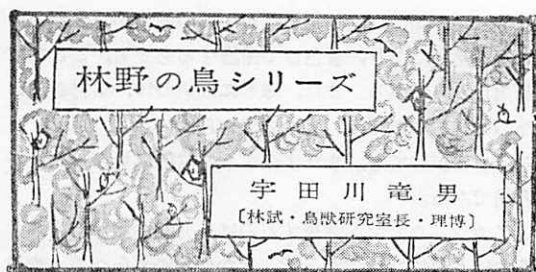 林野の鳥シリーズ
宇田川竜男
〔林試・鳥獣研究室長・理博〕